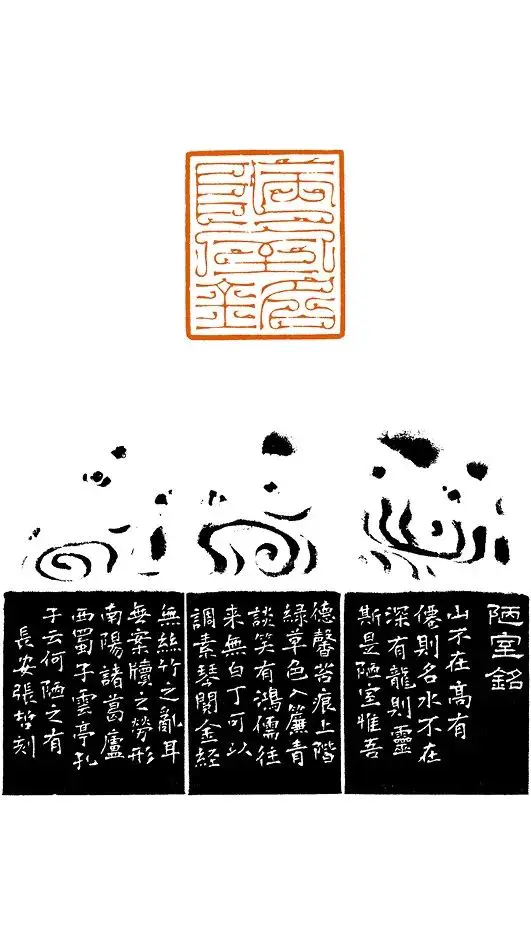 陋室銘
陋室銘
山不在高有
僊則名水不在
深有龍則靈
斯是陋室惟吾
德馨苔痕上階
綠草色入簾青
談笑有鴻儒往
来無白丁可以
調素琴閱金經
無絲竹之亂耳
無案牘之勞形
南陽諸葛廬
西蜀子雲亭孔
子云何陋之有
長安張哲刻